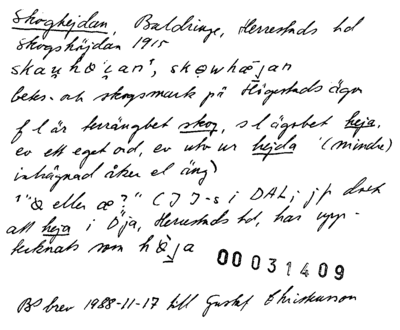 Skoghejdan, Baldringe, Herrestads hd
Skogshöjdan 1915
betes- och skogsmark på Högestads ägor
f l är terrängbet skog, s l ägobet heja,
ev ett eget ord, ev utv ur hejda (mindre
inhägnad åker el äng)
1 "ꝍ eller æ?" (JJ-s i DAL; jfr dock
att heja i Öja, Herrestads hd, har upp-
tecknats som
00031409
BS brev 1988-11-17 till Gustaf Christiansson